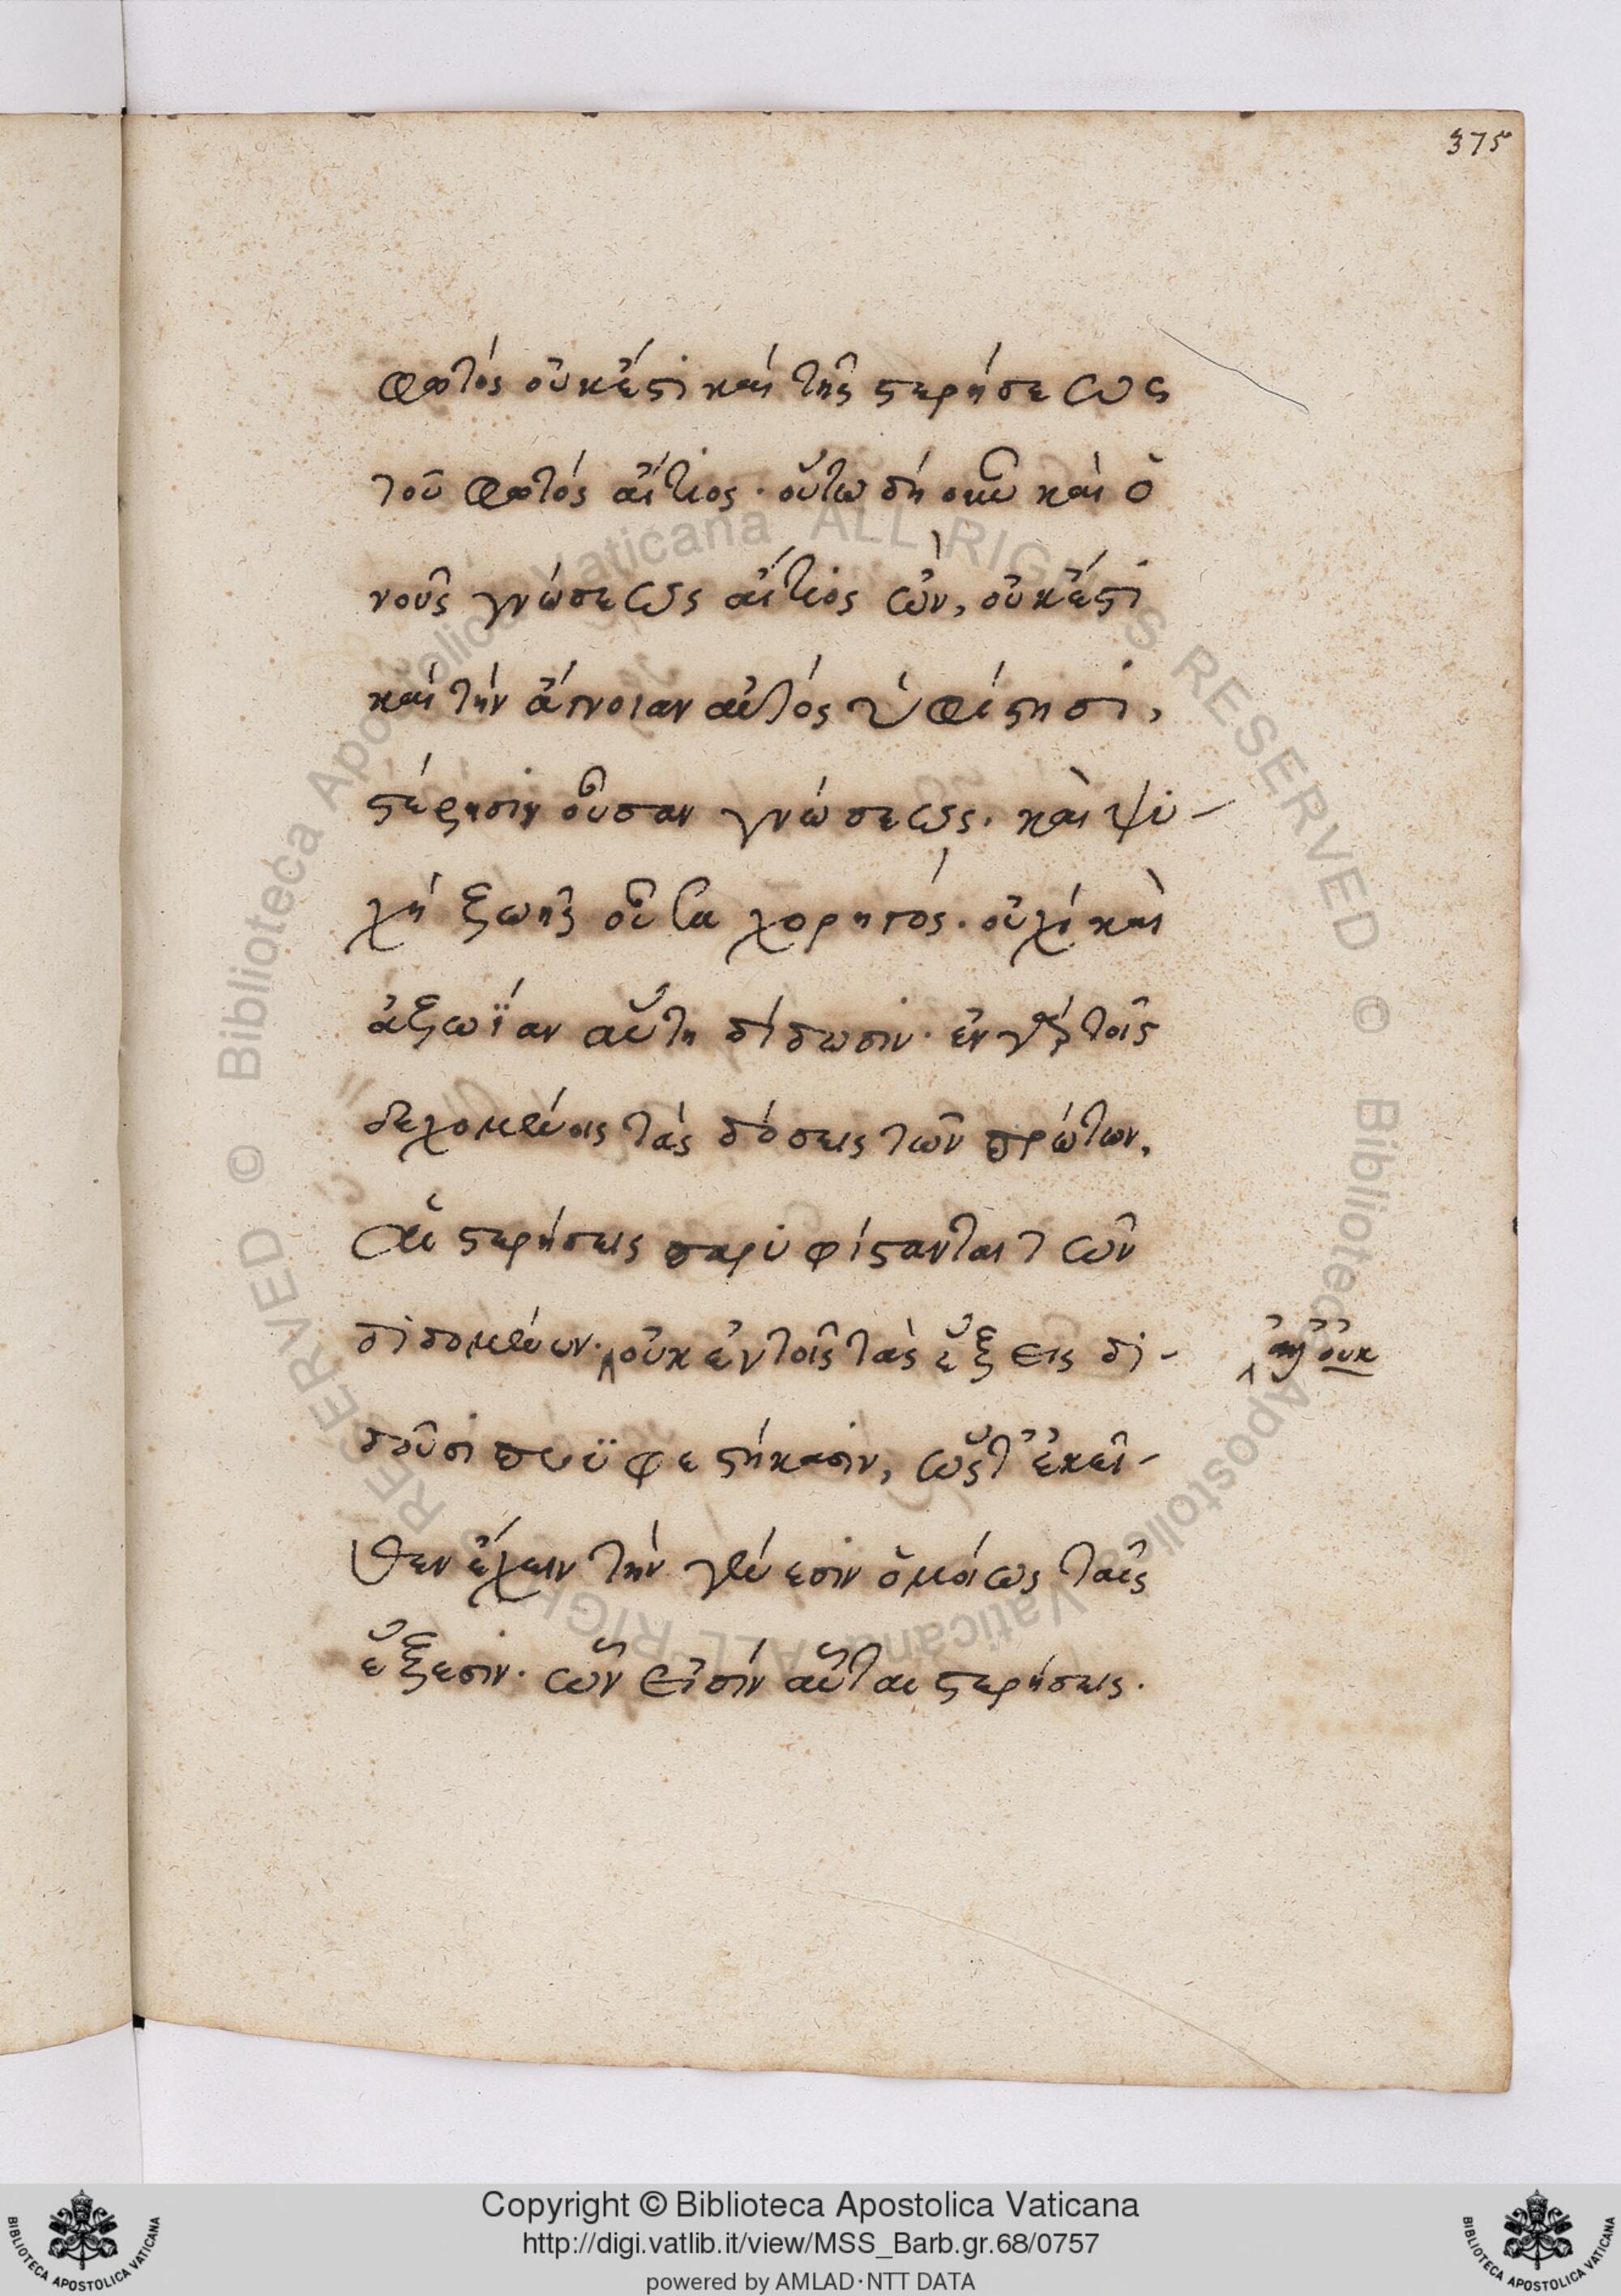 375
φωτός οὐκἔστι καί τῆς στερήσεως
τοῦ φωτός αἴτιος· οὕτω δή οὖν καὶ ὁ
νοῦς γνώσεως αἴτιος ὢν, οὐκἔστι
καί τήν ἄγνοιαν αὐτός ὑφίστησι,
στέρησιν οὖσαν γνώσεως. καὶ ψυ-
χή ζωῆς οὖσα χορηγός. οὐχί καὶ
ἀζωΐαν αὕτη δίδωσιν· ἐν γάρ τοῖς
δεχομένοις τάς δόσεις τῶν πρώτων,
αἱ στερήσεις παρυφίστανται τῶν
διδομένων· οὐκ ἐν τοῖς τὰς ἕξεις δι-
ἀλλ' οὐκ
δοῦσι προϋφεστήκασιν, ὥστ' ἐκεῖ-
θεν ἔχειν τήν γένεσιν ὁμοίως ταῖς
ἕξεσιν. ὧν εἰσίν αὗται στερήσεις.
Copyright © Biblioteca Apostolica Vaticana
http://digi.vatlib.it/view/MSS_Barb.gr.68/0757
powered by AMLAD·NTT DATA
BIBLIOTECA APOSTOLICA VATICANA
BIBLIOTECA APOSTOLICA VATICANA
© Biblioteca Apostolica Vaticana ALL RIGHTS RESERVED
© Biblioteca Apostolica Vaticana ALL RIGHTS RESERVED